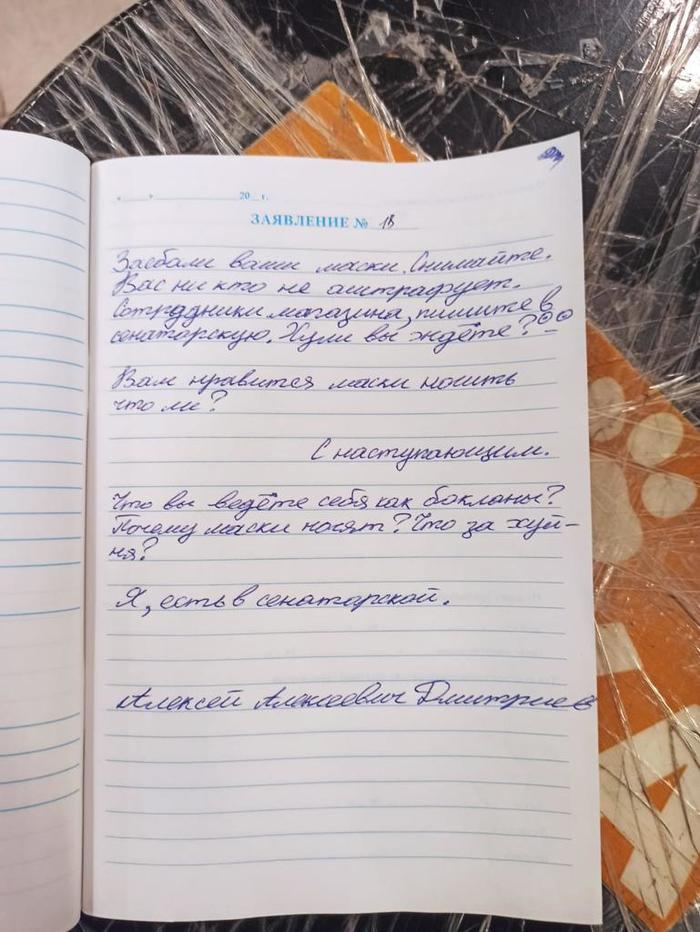 « » 20 г.
ЗАЯВЛЕНИЕ № 18
Заебали ваши маски. Снимайте.
Вас ни кто не аштрафует.
Сотрудники магазина, пишите в
сенаторскую. Хули вы ждёте?
Вам нравится маски носить
что ли?
С наступающим.
Что вы ведёте себя как бакланы?
Почему маски носят? Что за хуй-
ня?
Я, есть в сенаторской.
Алексей Алексеевич Дмитриев